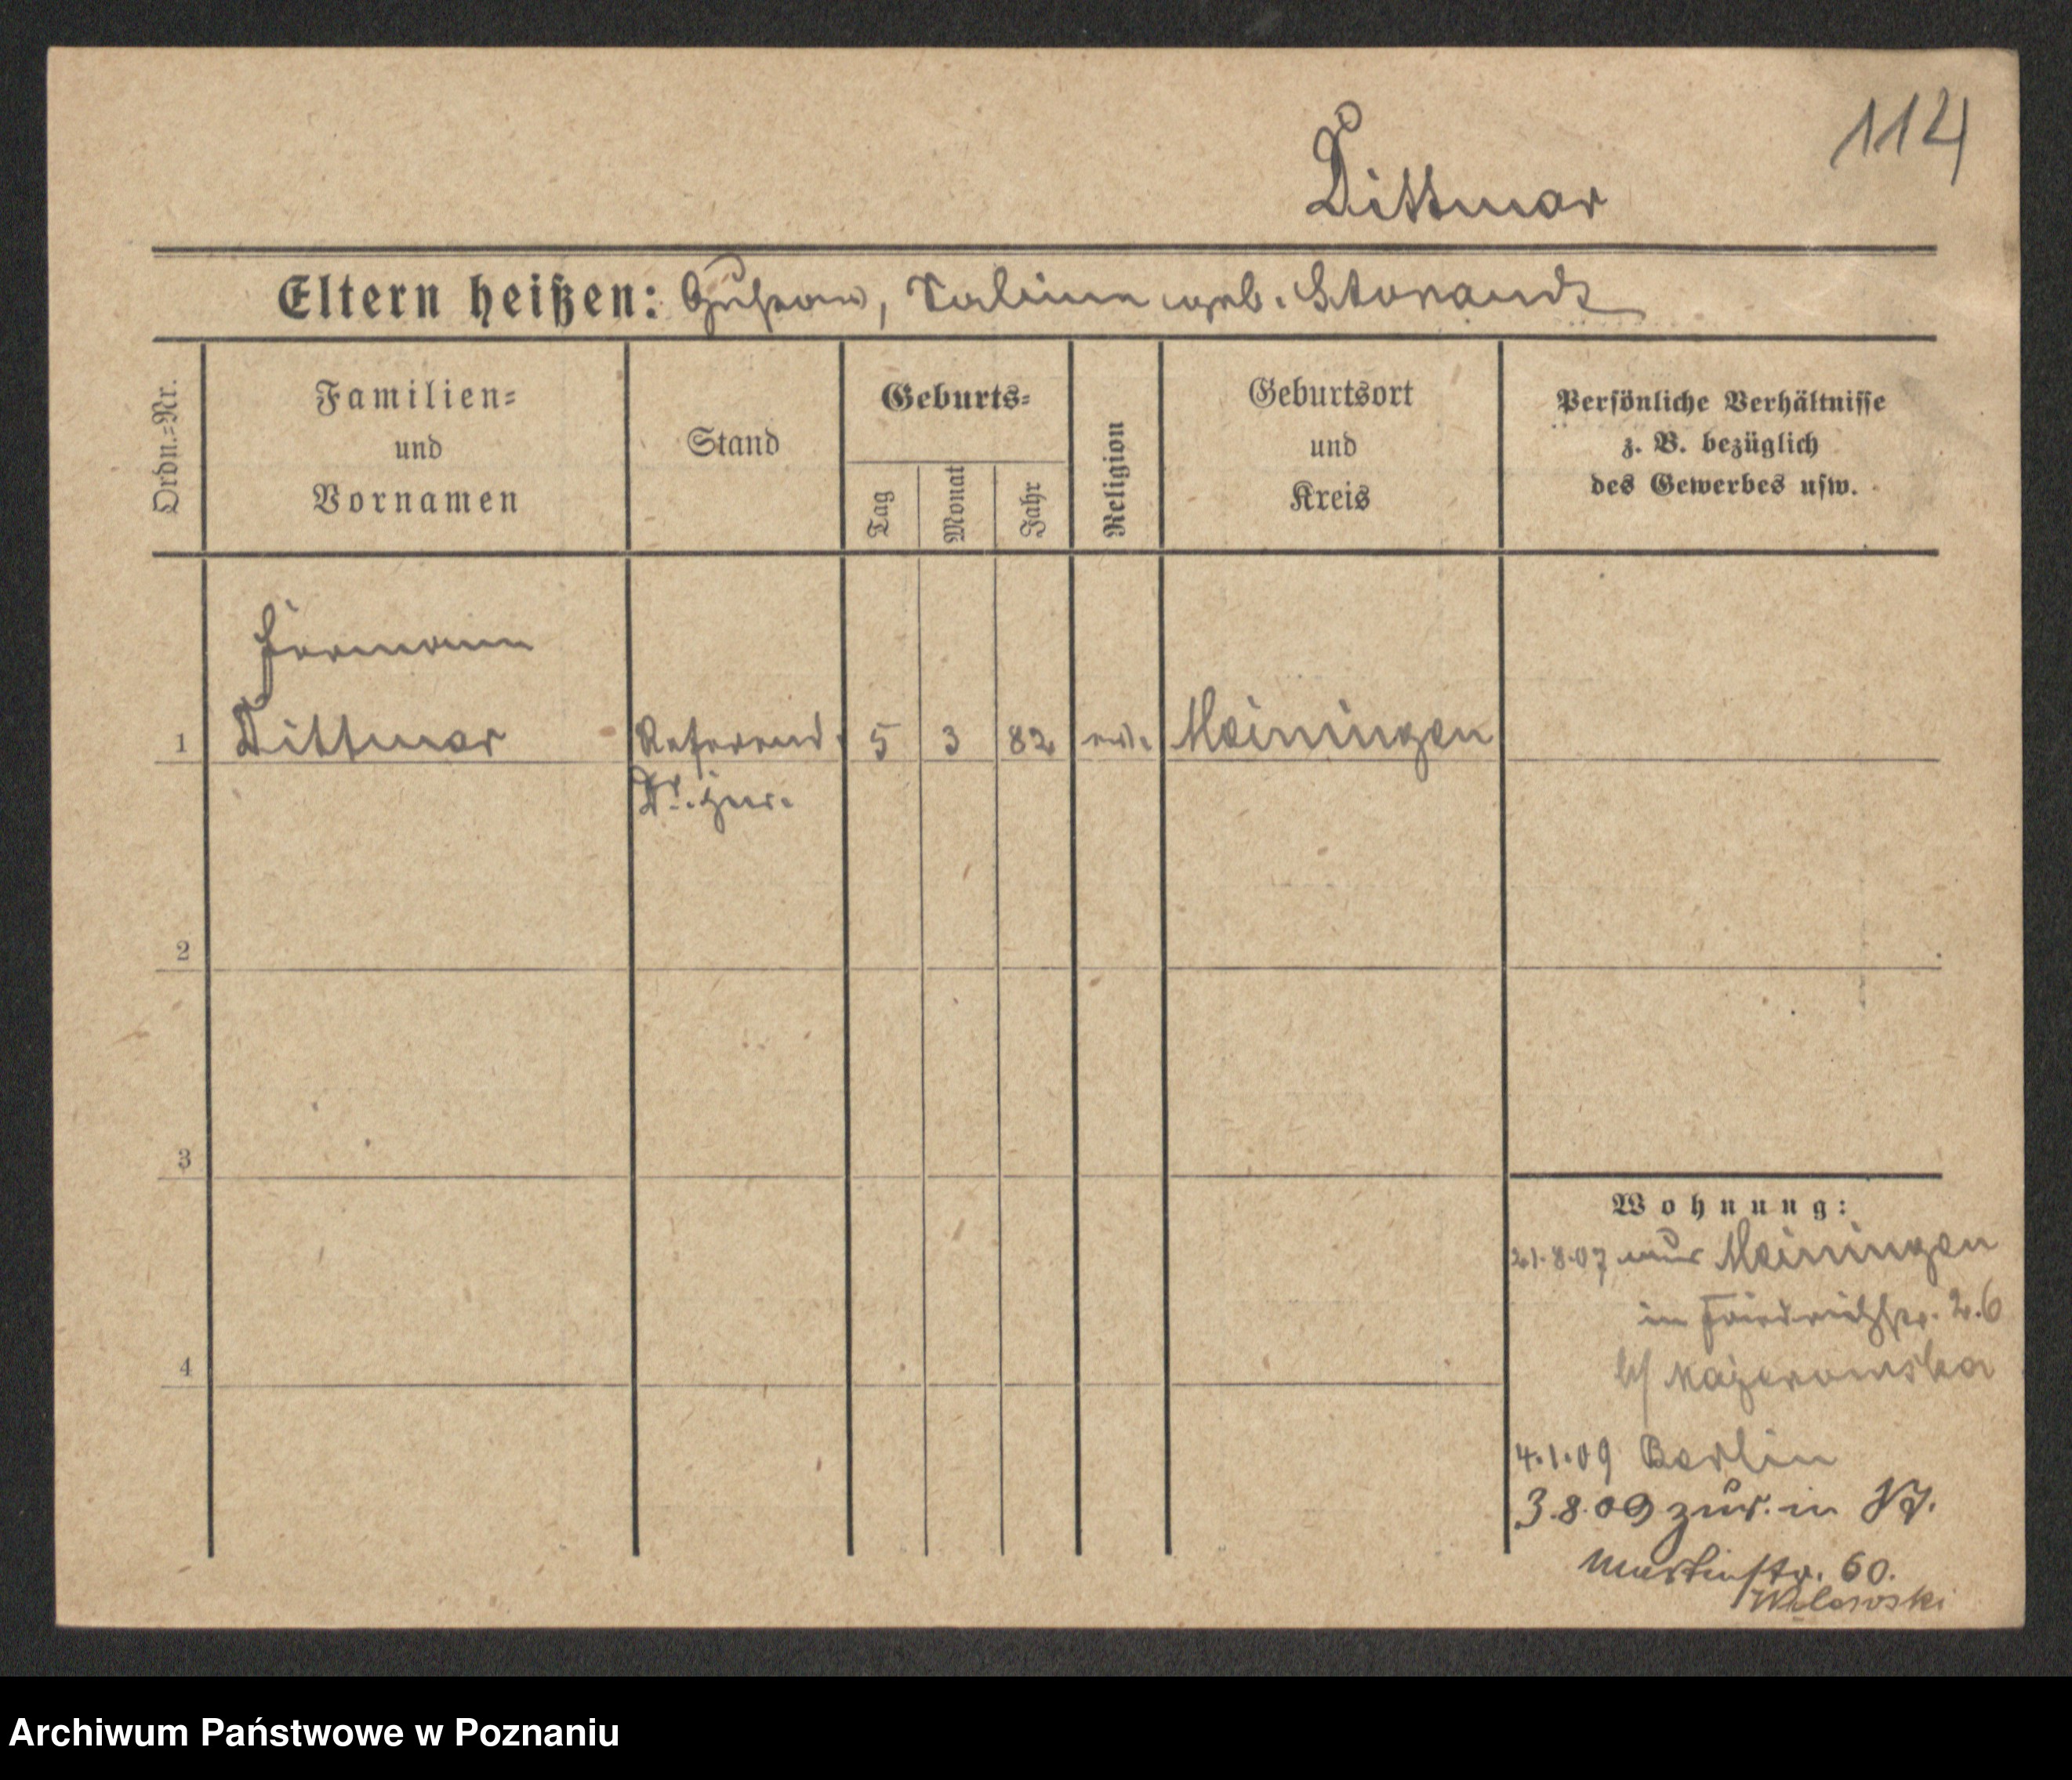 114
Dittmar
Eltern heißen: Gustav, geb. Storandt
Ordn.=Nr.
Familien=
und
Vornamen
Stand
Geburts=
Tag
Monat
Jahr
Religion
Geburtsort
und
Kreis
Persönliche Verhältnisse
z. B. bezüglich
des Gewerbes usw.
Hermann
1 Dittmar Referend. 5 3 82 Meiningen
Dr. jur.
2
3
4
Wohnung:
21.8.07 aus Meiningen
in Friedrichstr. 26
b/
4.1.09 Berlin
3.8.09 zur. in
Martinstr. 60.
Archiwum Państwowe w Poznaniu